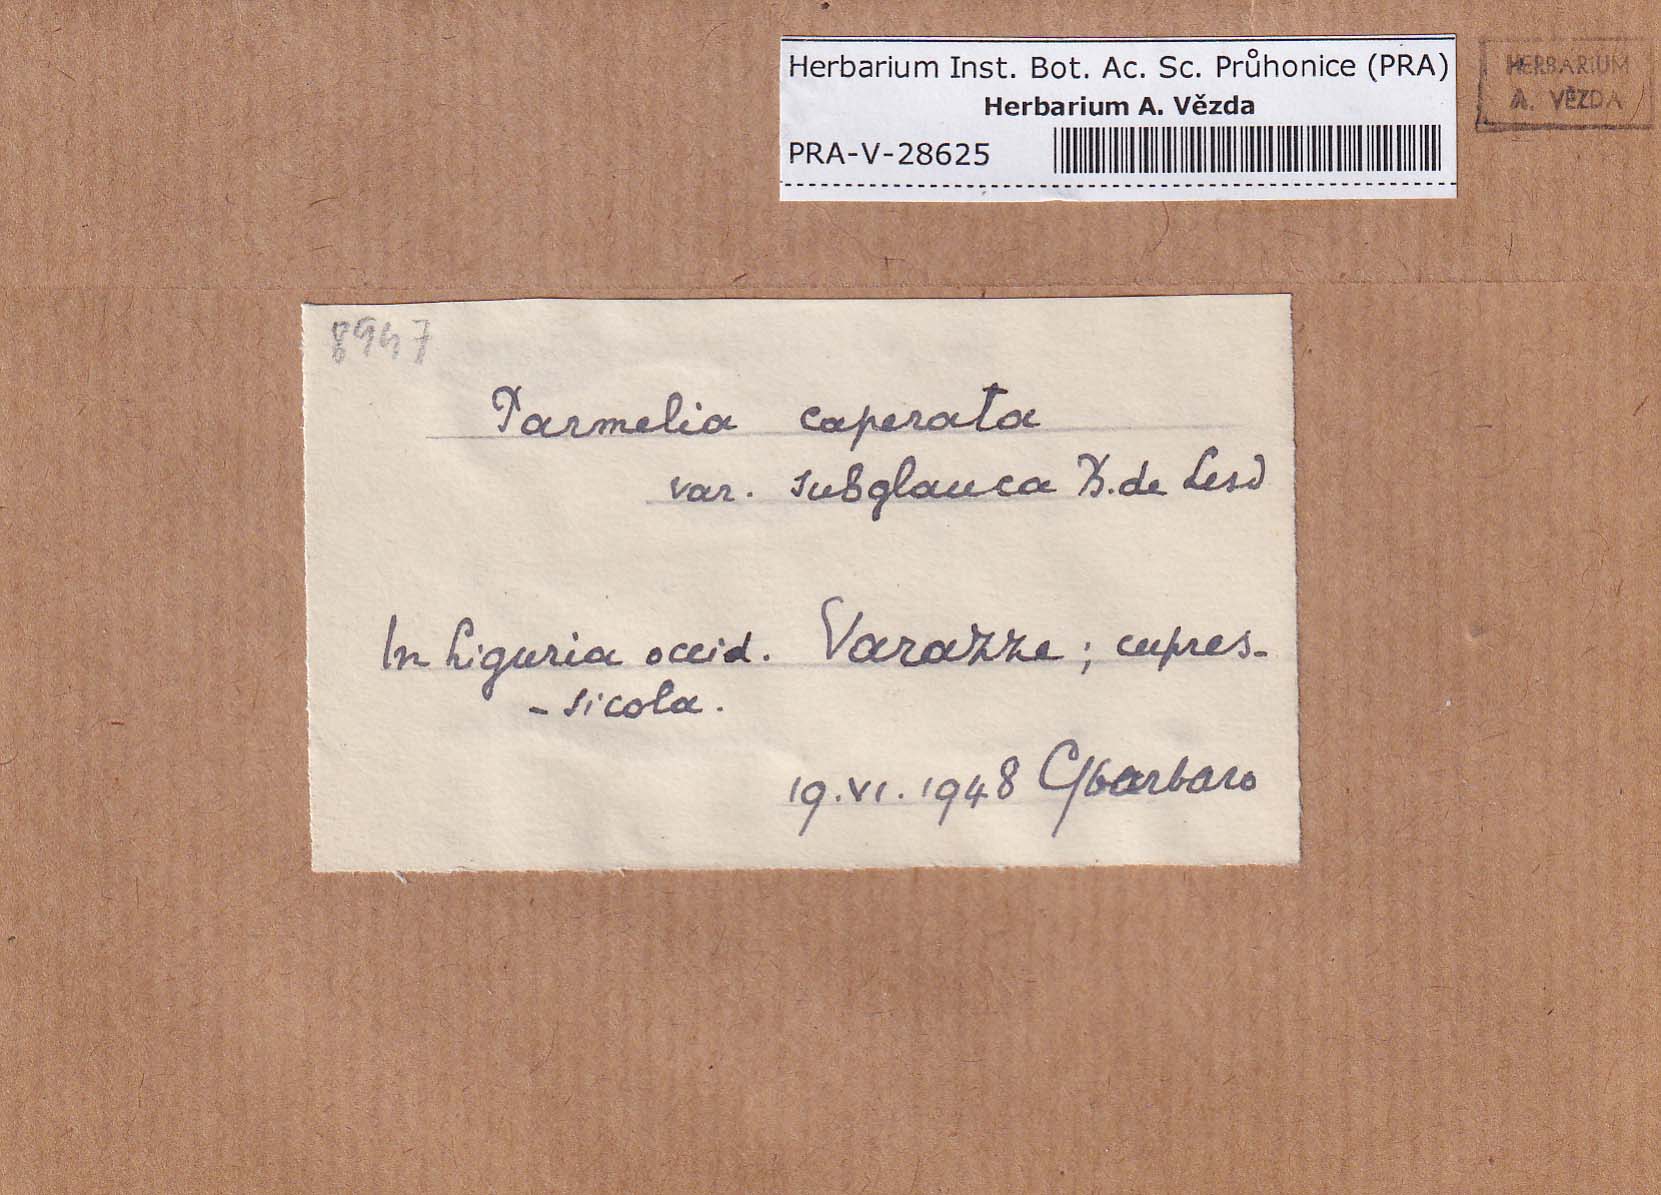 Herbarium Inst. Bot. Ac. Sc. Průhonice (PRA)
Herbarium A. Vězda
PRA-V-28625
HERBARIUM
A. VĚZDA
8947
Parmelia caperata
var. subglauca B. de Lesd
In Liguria occid. Varazze; cupres-
-sicola.
19.VI.1948 CSbarbaro